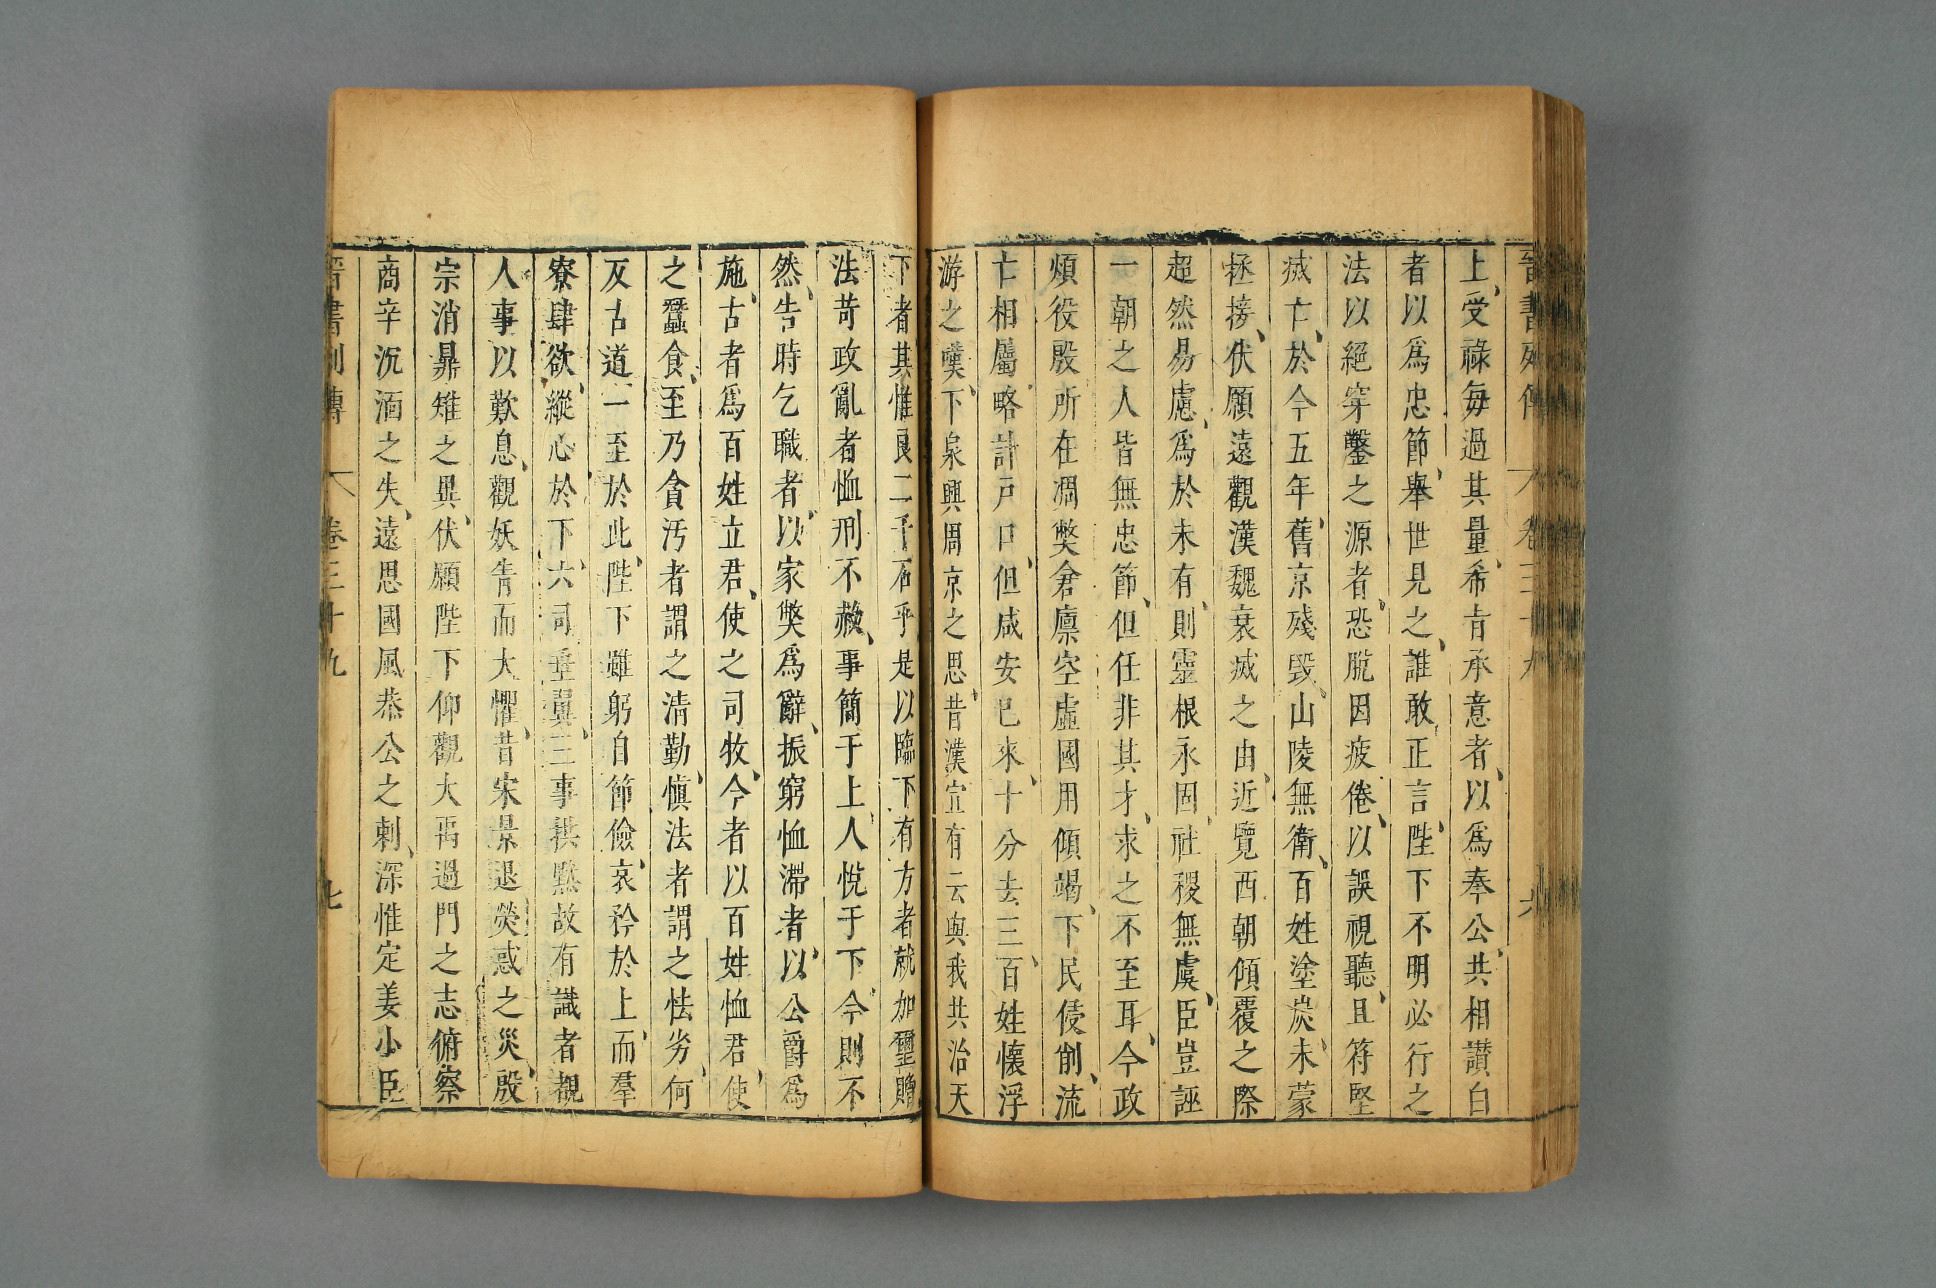 晉書列傳 卷三十九 六
上受祿每過其量希肯承意者以爲奉公共相讃白
者以爲忠節舉世見之誰敢正言陛下不明必行之
法以絕穿鑿之源者恐脫因疲倦以誤視聽且苻堅
滅亡於今五年舊京殘毀山陵無衛百姓塗炭未蒙
拯接伏願遠觀漢魏衰滅之由近覽西朝傾覆之際
超然易慮爲於未有則靈根永固社稷無虞臣豈誣
一朝之人皆無忠節但任非其才求之不至耳今政
煩役殷所在凋弊倉廩空虛國用傾竭下民侵削流
亡相屬略計戶口但咸安已來十分去三百姓懷浮
游之嘆下泉興周京之思昔漢宣有云與我共治天
下者其惟良二千石乎是以臨下有方者就加璽贈
法苛政亂者恤刑不赦事簡于上人悅于下今則不
然告時乞職者以家弊爲辭振窮恤滯者以公爵爲
施古者爲百姓立君使之司牧今者以百姓恤君使
之蠶食至乃貪汚者謂之清勤慎法者謂之怯劣何
反古道一至於此陛下雖躬自節儉哀矜於上而羣
寮肆欲縱心於下六司垂翼三事拱默故有識者覩
人事以歎息觀妖眚而大懼昔宋景退熒惑之災殷
宗消鼎雉之異伏願陛下仰觀大禹過門之志俯察
商辛沉湎之失遠思國風恭公之刺深惟定姜小臣
晉書列傳 卷三十九 七